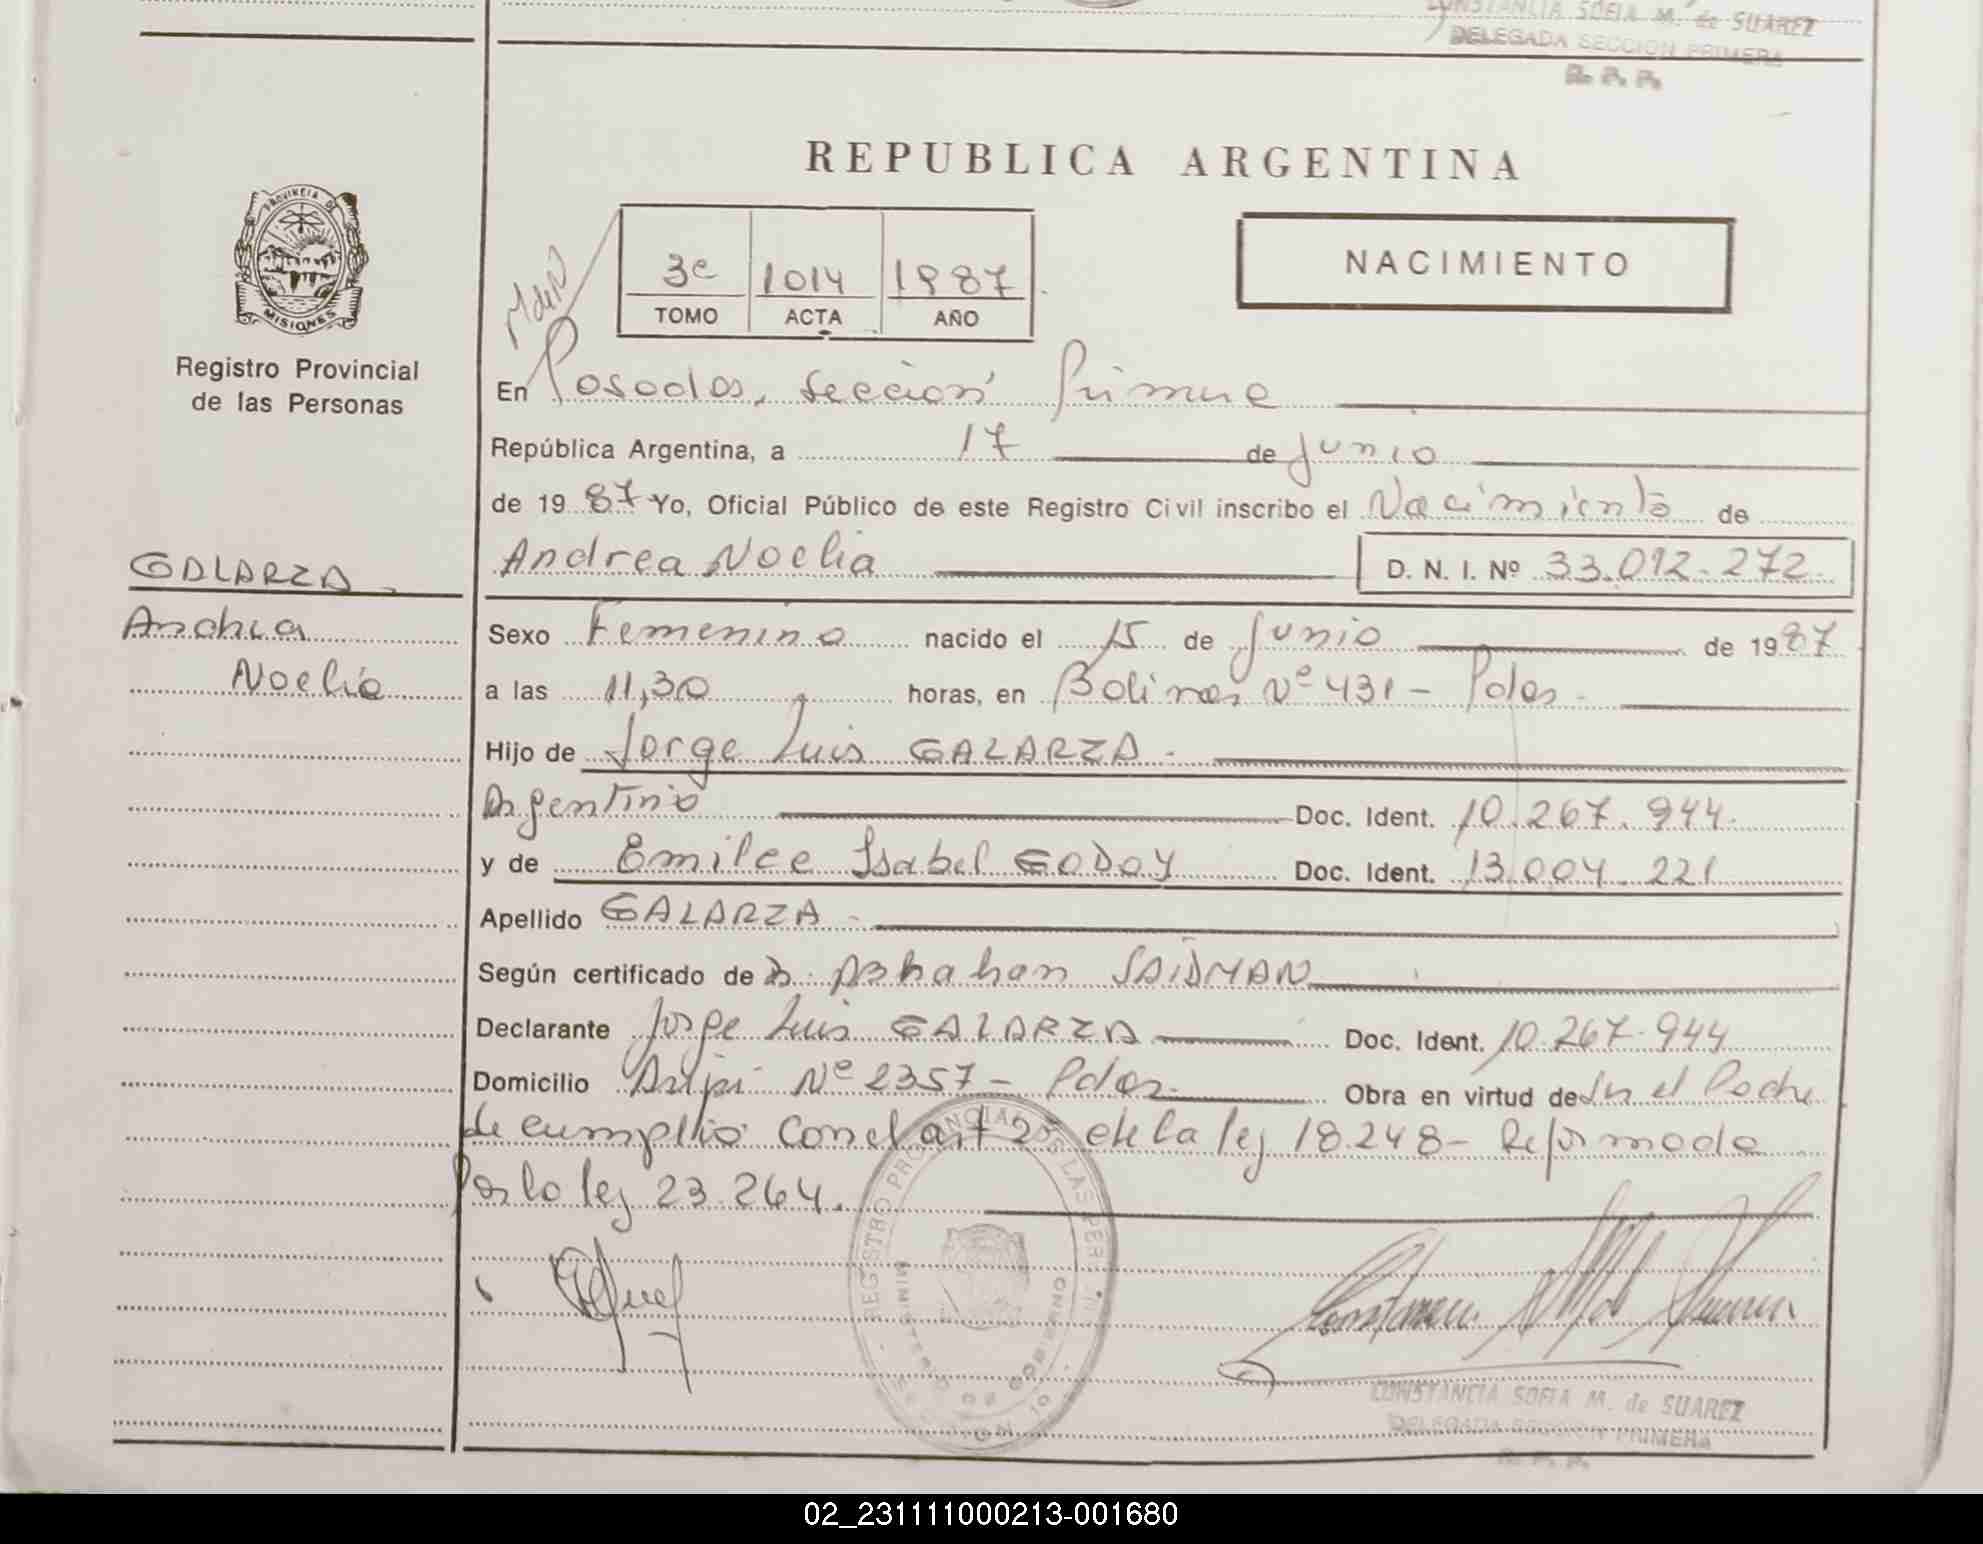 CONSTANCIA SOFIA M. de SUAREZ
DELEGADA SECCION PRIMERA
R. P. P.
REPUBLICA ARGENTINA
PROVINCIA DE
MISIONES
NACIMIENTO
3e 1014 1987
TOMO ACTA AÑO
Registro Provincial
de las Personas
En Posadas, Sección Primera
República Argentina, a 17 de Junio
de 1987 Yo, Oficial Público de este Registro Civil inscribo el Nacimiento de
Andrea Noelia D. N. I. Nº 33.012.272.
GALARZA
Andrea
Noelia
Sexo Femenino nacido el 15 de Junio de 1987
a las 11,30 horas, en Bolivar Nº 431 - Pdas.
Hijo de Jorge Luis GALARZA.
Argentino Doc. Ident. 10.267.944.
y de Emilce Isabel GODOY Doc. Ident. 13.004.221
Apellido GALARZA.
Según certificado de Abrahan SAIDMAN
Declarante Jorge Luis GALARZA Doc. Ident. 10.267.944
Domicilio Nº 2357 - Pdas. Obra en virtud de Ser el Padre
de cumplio con el art 2º de la ley 18.248 - Reformada
Por la ley 23.264.
REGISTRO PROVINCIAL DE LAS PERSONAS
MINISTERIO DE GOBIERNO
CONSTANCIA SOFIA M. de SUAREZ
DELEGADA SECCION PRIMERA
R. P. P.
02_231111000213-001680